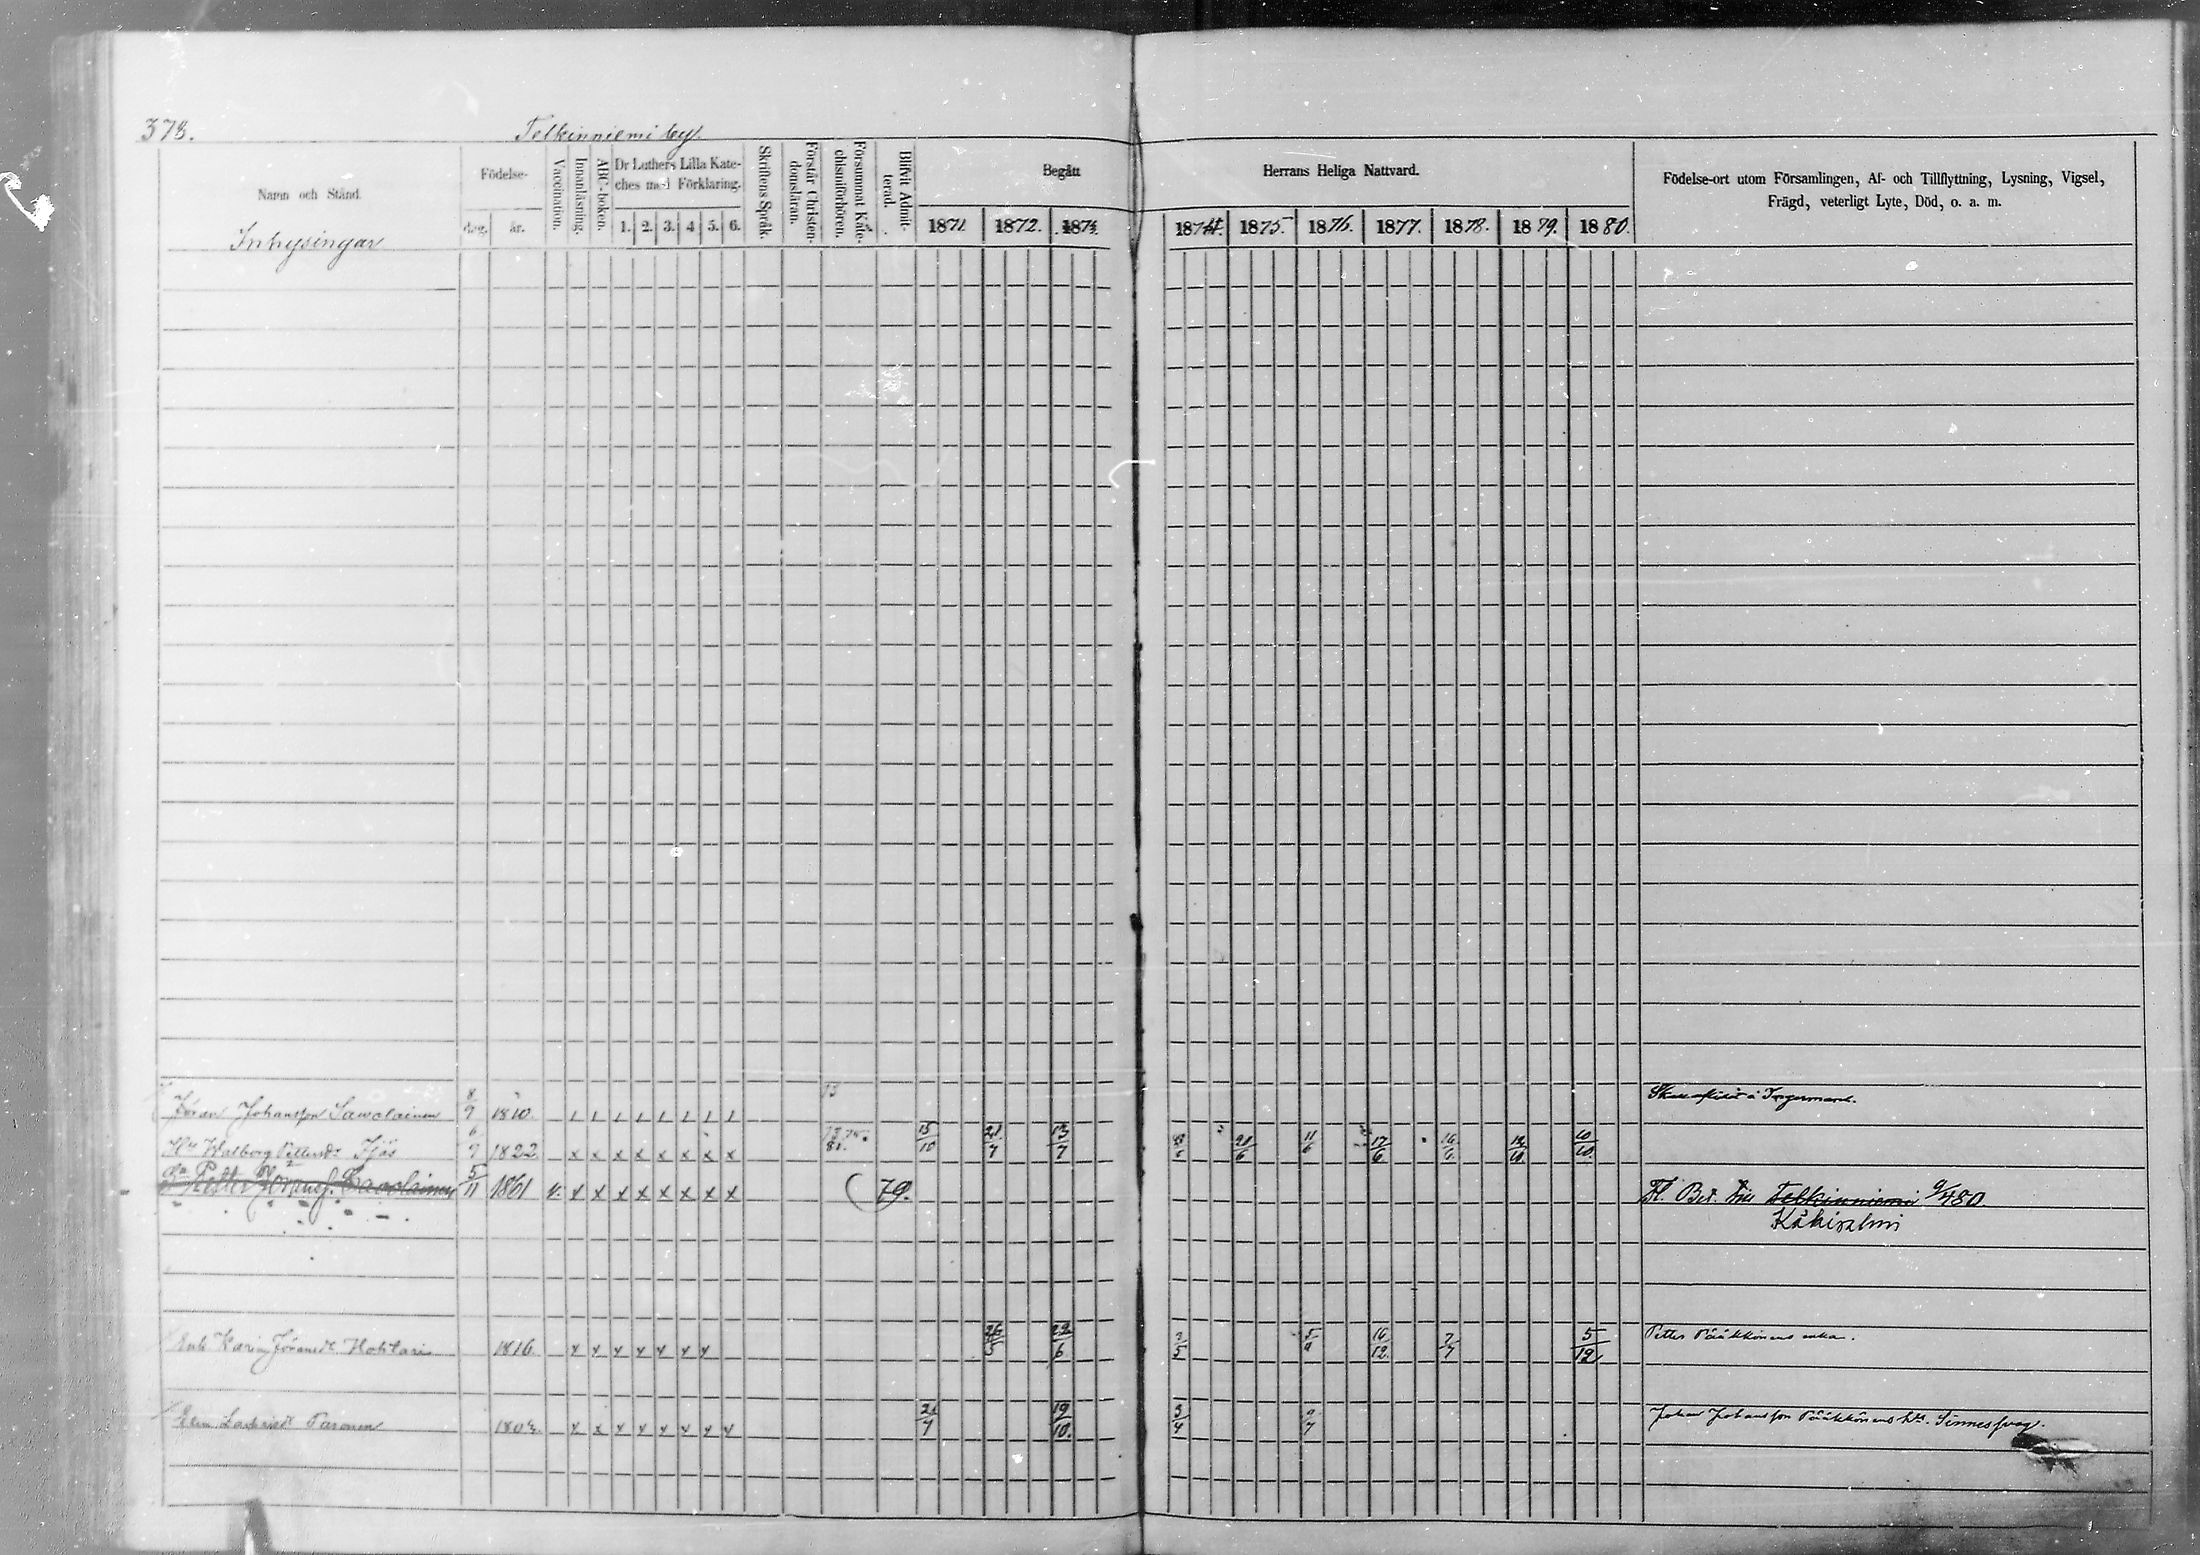 373. Telkinniemi by.
Namn och Stånd.
Inhysingar
Födelse-
dag. år.
Vaccination.
Innanläsning.
ABC-boken.
Dr Luthers Lilla Kate-
ches med Förklaring.
1. 2. 3. 4 5. 6.
Skriftens Språk.
Förstår Christen-
domsläran.
Försummat Kate-
chismiförhören.
Blifvit Admit-
terad.
Begått Herrans Heliga Nattvard.
1871. 1872. 1873. 1874. 1875. 1876. 1877. 1878. 1879. 1880.
Födelse-ort utom Församlingen, Af- och Tillflyttning, Lysning, Vigsel,
Frägd, veterligt Lyte, Död, o. a. m.
Jöran Johansson Sawolainen 8/9 1810. i Ingermanl.
Hu Walborg Pettersdr Jääs 6/9 1822 x x x x x x x x 15/10 21/7 13/7 21/6 11/6 17/6 16/6 10/10
Petter Göransf. Savolainen 5/11 1861 v. x x x x x x x x 79. Fl. Bet. till Telkinniemi 480.
Käkisalmi
Enk Karin Jöransdr Hohtari 1816. x x x x x x x 26/5 29/6 2/5 16/12 2/7 5/12 Petter Pääkkönens enka.
Elin Paronen 1803. x x x x x x x x 21/7 19/10. 3/4 Johan Johansson Pääkkönens Sinnessvag.